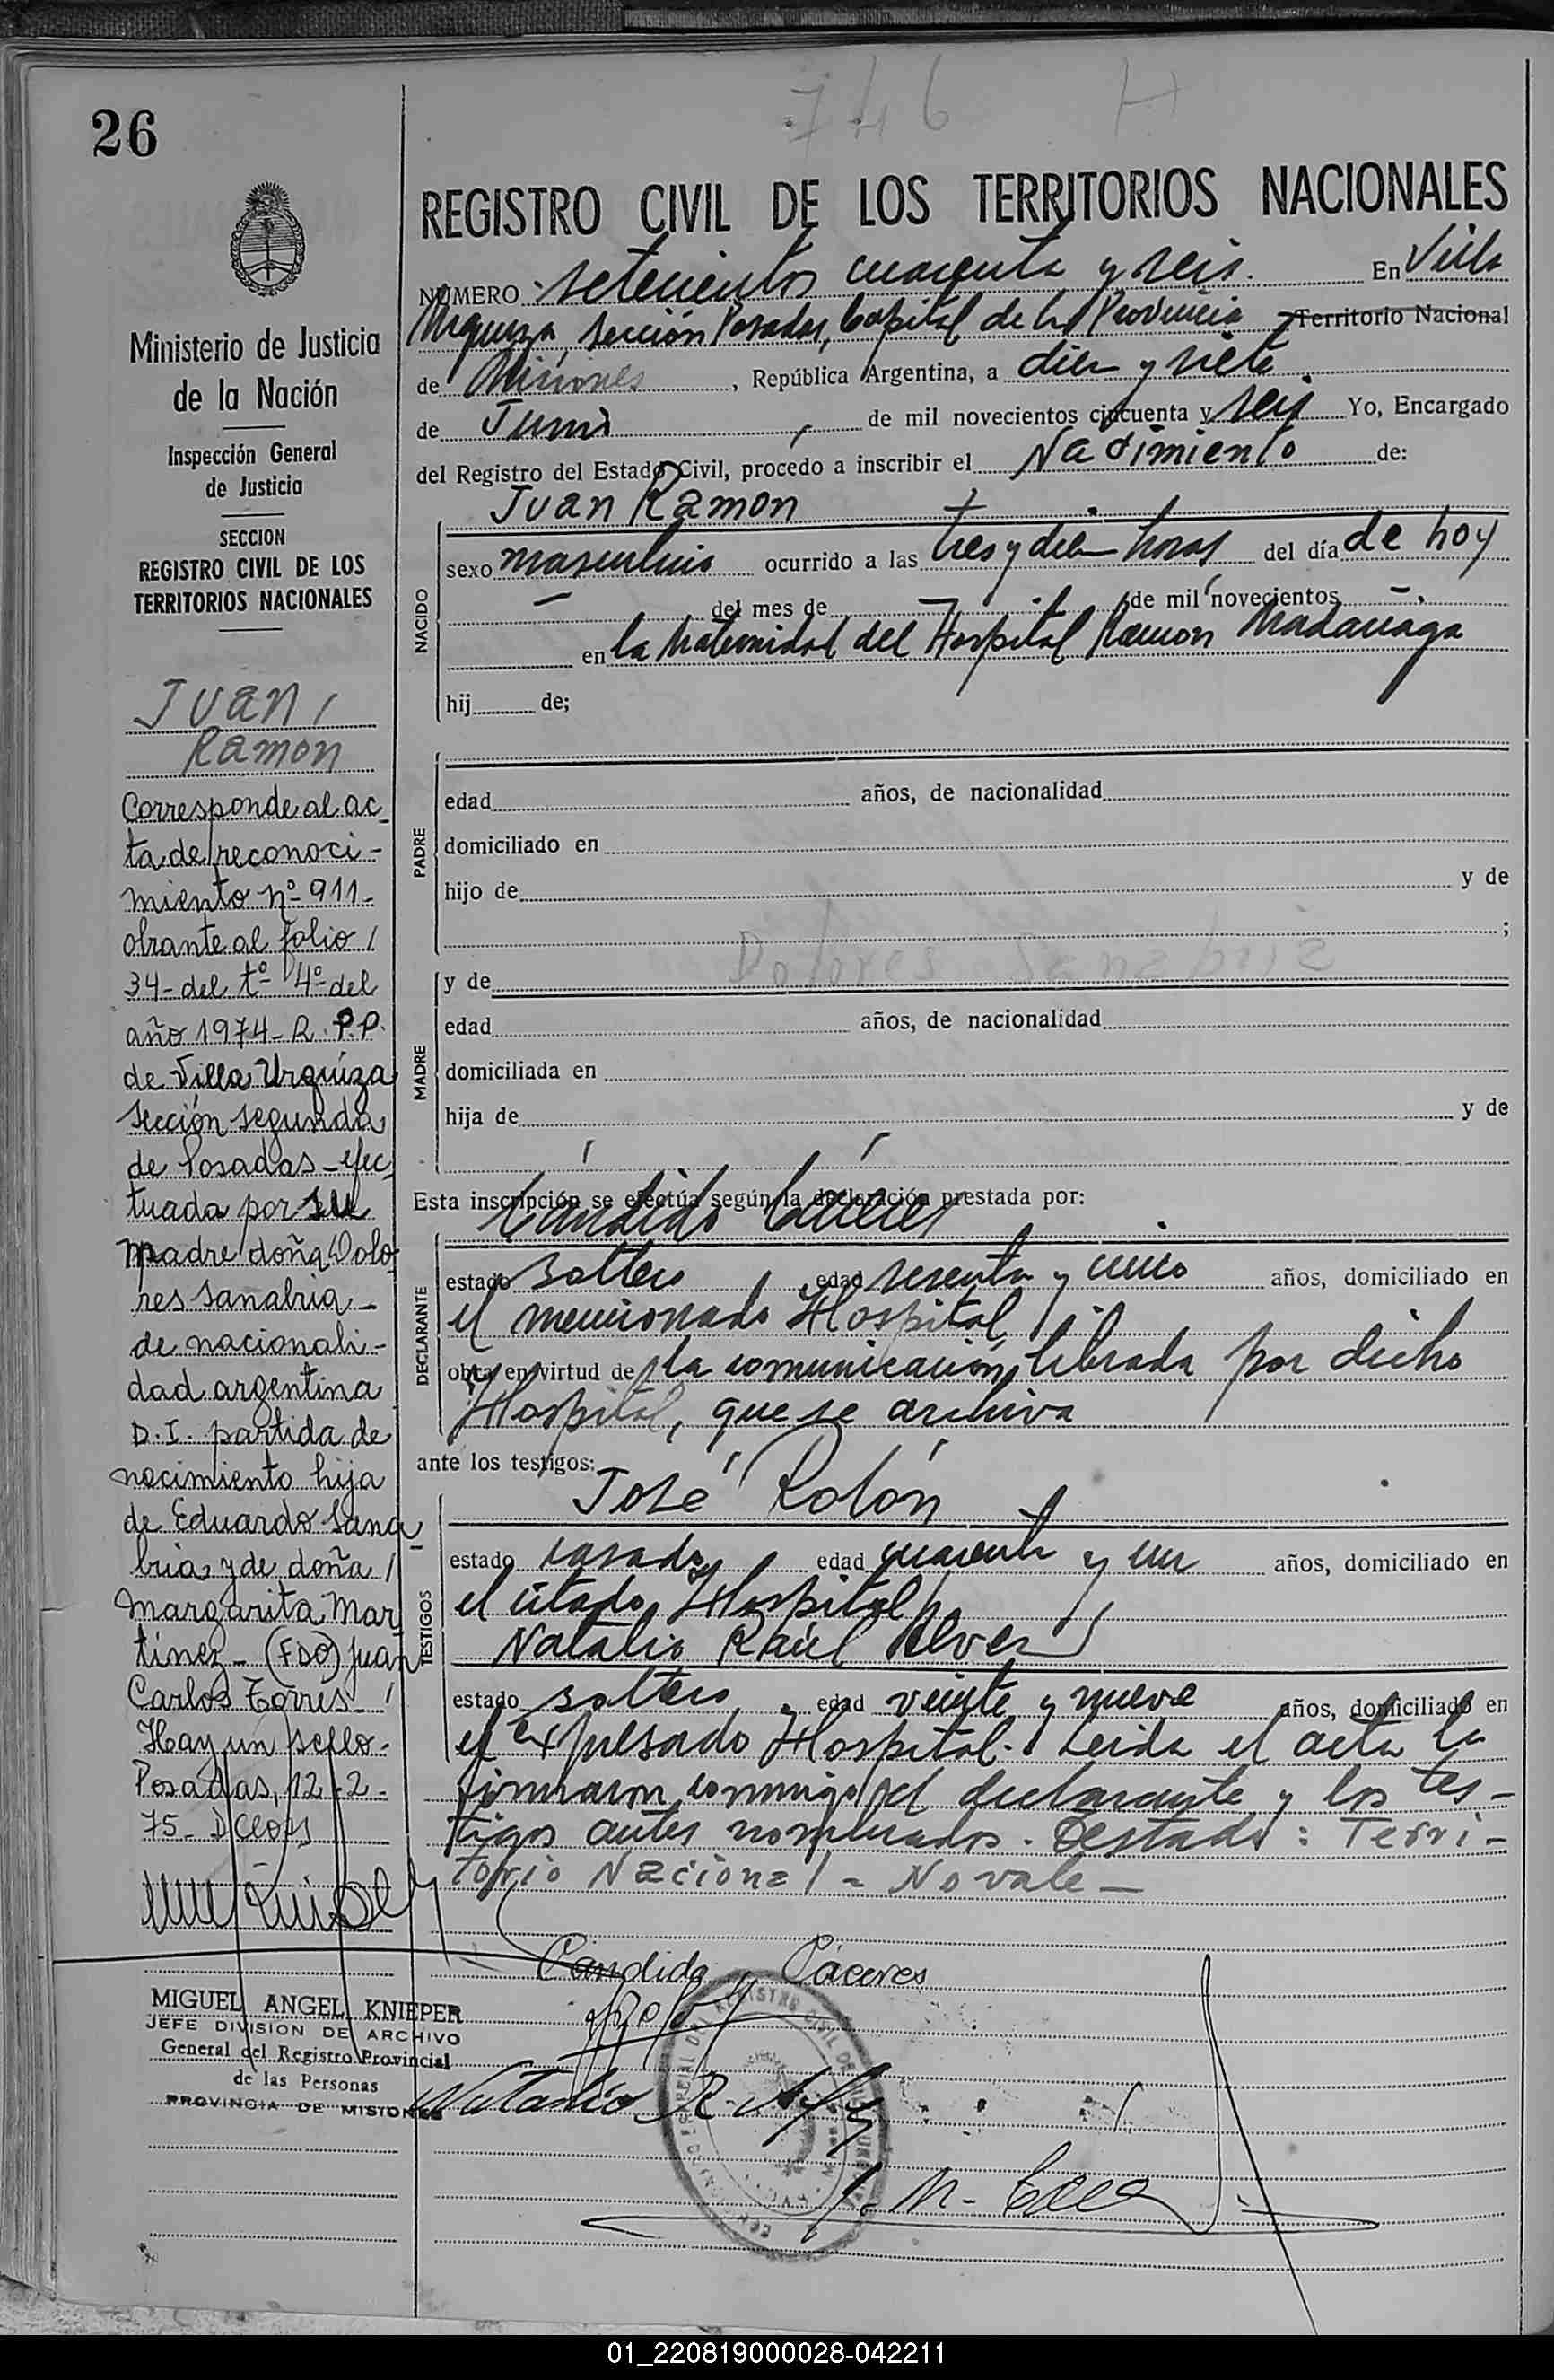 746 H
26
REGISTRO CIVIL DE LOS TERRITORIOS NACIONALES
NÚMERO setecientos cuarenta y seis. En Villa
Urquiza, sección Posadas, Capital de la Provincia Territorio Nacional
de Misiones, República Argentina, a diez y siete
de Junio de mil novecientos cincuenta y seis Yo, Encargado
del Registro del Estado Civil, procedo a inscribir el Nacimiento de:
Juan Ramon
NACIDO
sexo masculino ocurrido a las tres y diez horas del día de hoy
del mes de de mil novecientos
en la Maternidad del Hospital Ramon Madariaga
hij de;
PADRE
edad años, de nacionalidad
domiciliado en
hijo de y de
;
Dolores Sanabria
y de
MADRE
edad años, de nacionalidad
domiciliada en
hija de y de
Esta inscripción se efectúa según la declaración prestada por:
Cándido Cáceres
DECLARANTE
estado soltero edad sesenta y cinco años, domiciliado en
el mencionado Hospital
obra en virtud de la comunicación librada por dicho
Hospital, que se archiva
ante los testigos:
José Rolón
TESTIGOS
estado casado, edad cuarenta y un años, domiciliado en
el citado Hospital
Natalio Raúl Alvez
estado soltero edad veinte y nueve años, domiciliado en
el expresado Hospital. Leida el acta la
firmaron conmigo el declarante y los tes-
tigos antes nombrados. Testado: Terri-
torio Nacional - No vale -
Cándido Cáceres
Natalio R.
Ministerio de Justicia
de la Nación
Inspección General
de Justicia
SECCION
REGISTRO CIVIL DE LOS
TERRITORIOS NACIONALES
Juan
Ramon
Corresponde al ac-
ta de reconoci-
miento nº 911-
obrante al folio
34- del tº 4º del
año 1974- R. P.P.
de Villa Urquiza
sección segunda
de Posadas - efec
tuada por su
madre doña Dolo-
res Sanabria -
de nacionali-
dad argentina
D.I. partida de
nacimiento hija
de Eduardo Sana
bria y de doña
Margarita Mar
tinez - (FDO) Juan
Carlos Torres -
Hay un sello -
Posadas, 12-2-
75-
MIGUEL ANGEL KNIEPER
JEFE DIVISION DE ARCHIVO
General del Registro Provincial
de las Personas
PROVINCIA DE MISIONES
01_220819000028-042211